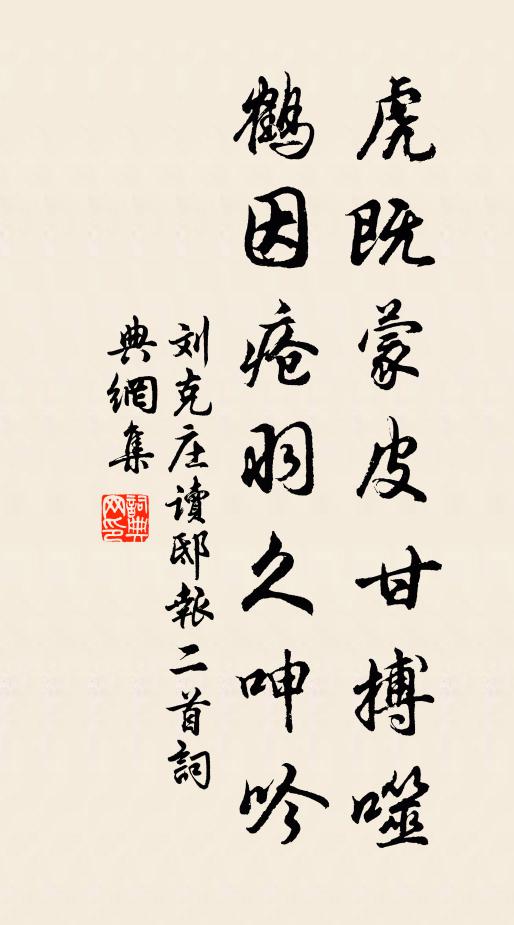 虎既蒙皮甘搏噬
鹤因疮羽久呻吟
刘克庄读邸報二首詞
典網集
詞典網印